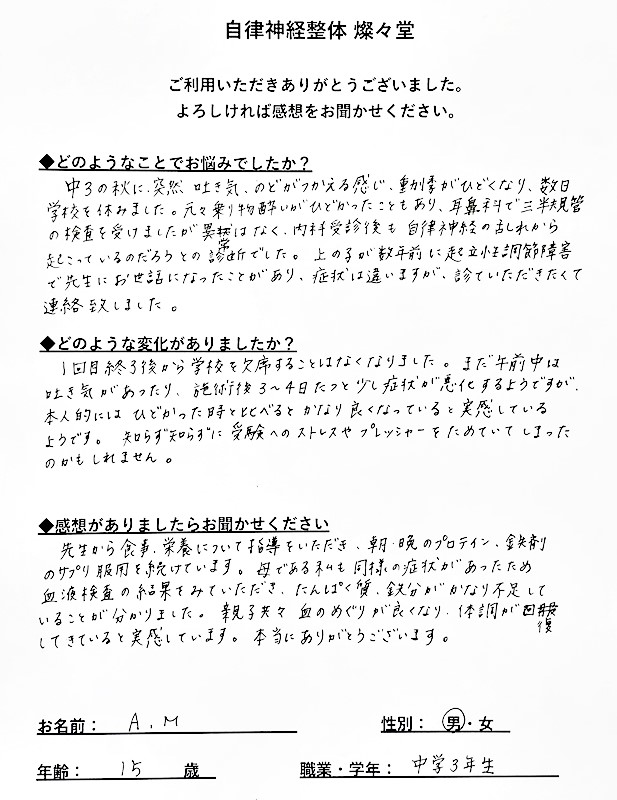 自律神経整体 燦々堂
ご利用いただきありがとうございました。
よろしければ感想をお聞かせください。
◆どのようなことでお悩みでしたか？
中3の秋に、突然 吐き気、のどがつかえる感じ、動悸がひどくなり、数日
学校を休みました。元々乗り物酔いがひどかったこともあり、耳鼻科で三半規管
の検査を受けましたが異常はなく、内科受診後も自律神経の乱れから
起こっているのだろうとの診断でした。上の子が数年前に起立性調節障害
で先生にお世話になったことがあり、症状は違いますが、診ていただきたくて
連絡致しました。
◆どのような変化がありましたか？
1回目終了後から学校を欠席することはなくなりました。まだ午前中は
吐き気があったり、施術後3〜4日たつと少し症状が悪化するようですが、
本人的にはひどかった時と比べるとかなり良くなっていると実感している
ようです。知らず知らずに受験へのストレスやプレッシャーをためていてしまった
のかもしれません。
◆感想がありましたらお聞かせください
先生から食事、栄養について指導をいただき、朝・晩のプロテイン、鉄剤
のサプリ服用を続けています。母である私も同様の症状があったため
血液検査の結果をみていただき、たんぱく質、鉄分がかなり不足して
いることが分かりました。親子共々血のめぐりが良くなり、体調が回復
してきていると実感しています。本当にありがとうございます。
お名前： A.M 性別： 男・女
年齢： 15 歳 職業・学年： 中学3年生